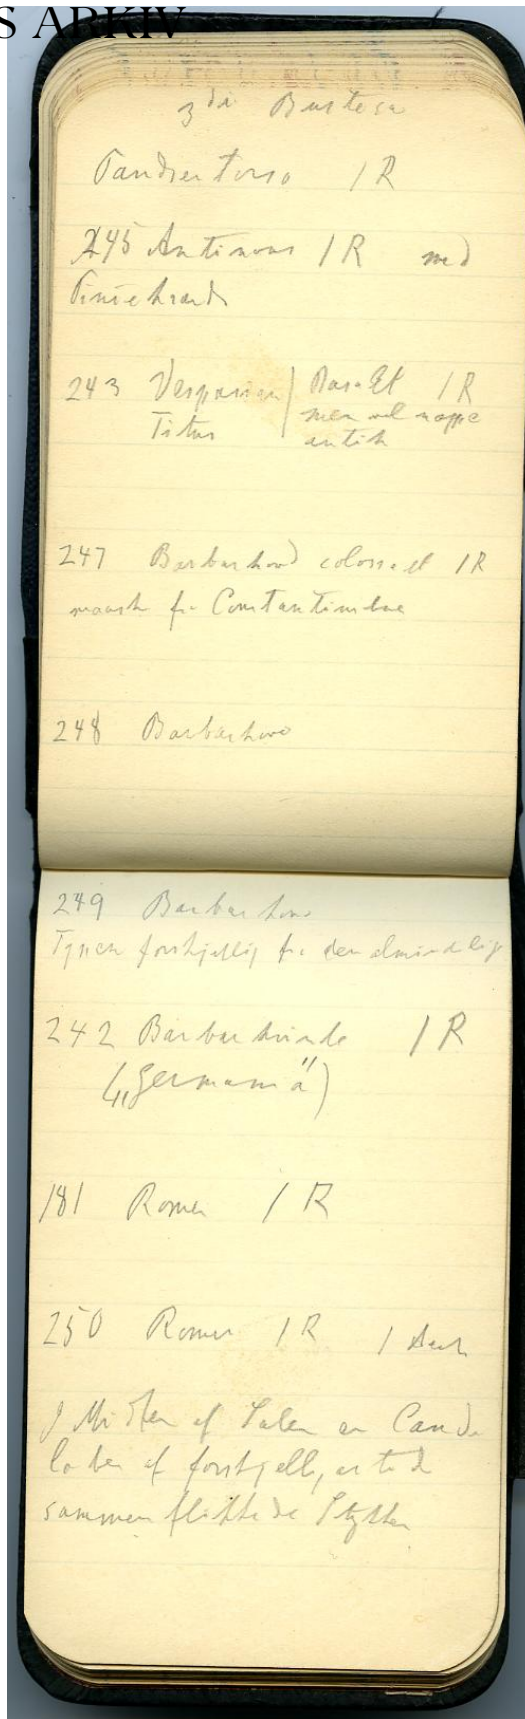 S ARKIV
3di Bustesa
Pandsertorso 1 R
245 Antinous 1 R med
Piniekrands
243 Vespasian | Basalt 1 R
Titus men vel næppe
antik
247 Barbarhoved colossalt 1 R
maaske fra Constantinsbue
248 Barbarhoved
249 Barbarhoved
Typen forskjellig fra den almindelige
242 Barbarkvinde 1 R
(„Germania")
181 Romer 1 R
250 Romer 1 R 1
I Midten af Salen en Cande
laber af forskjellig
sammenflikkede Stykker